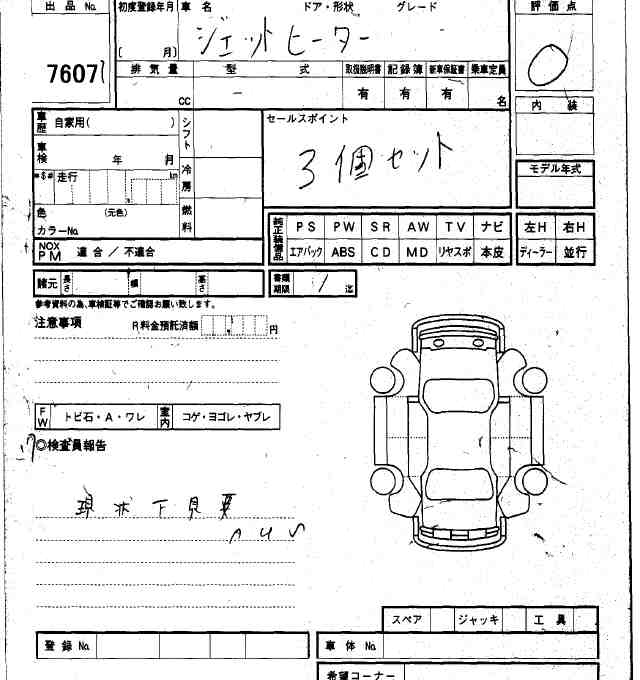 出品No. 初度登録年月 車名 ドア・形状 グレード 評価点
( 月) ジェットヒーター
7607
排気量 型式 取扱説明書 記録簿 新車保証書 乗車定員
cc ー 有 有 有 名
内装
車歴 自家用( ) シフト セールスポイント
3個セット
車検 年 月 冷房
モデル年式
走行 km
色 (元色) 燃料
カラーNo.
純正装備品 PS PW SR AW TV ナビ 左H 右H
エアバック ABS CD MD リヤスポ 本皮 ディーラー 並行
NOX PM 適合 / 不適合
諸元 長さ 幅 高さ 書類期限 / 迄
参考資料の為、車検証等でご確認お願い致します。
注意事項 R料金預託済額 円
FW トビ石・A・ワレ 室内 コゲ・ヨゴレ・ヤブレ
◎検査員報告
現状下見要
スペア ジャッキ 工具
登録No. 車体No.
希望コーナー